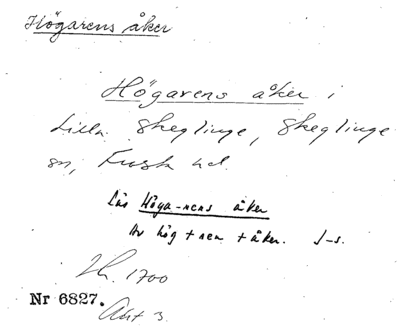 Högarens åker
Högarens åker i
Lilla Skeglinge, Skeglinge
sn, Frosta hd.
Läs Höga-rens åker
Av hög + ren + åker. J-s.
Lh. 1700
Nr 6827.
Akt 3